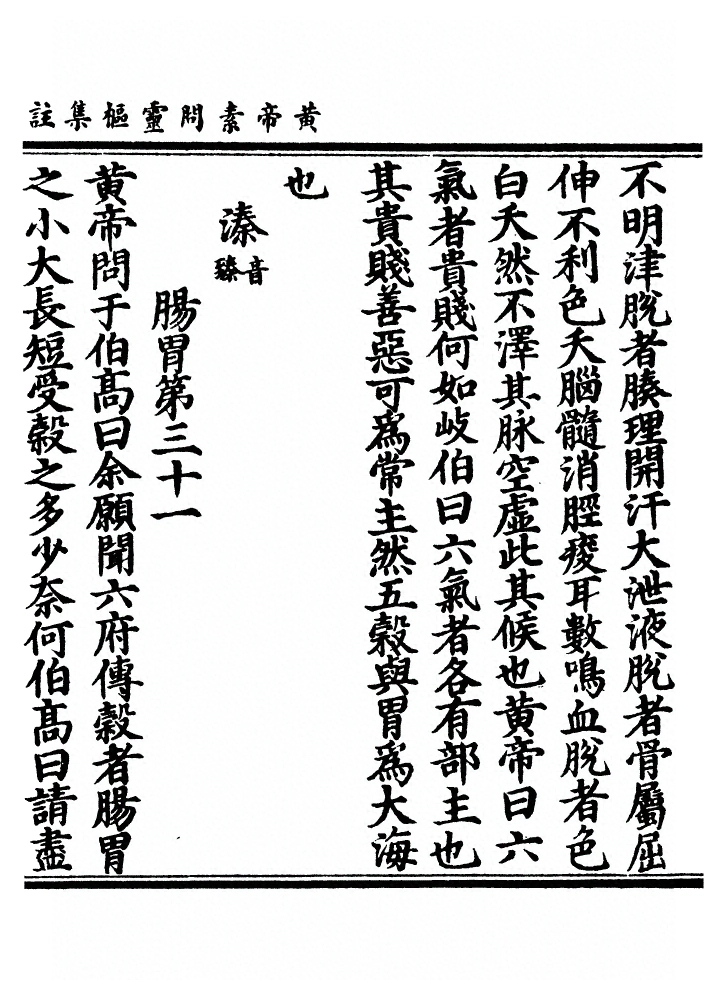 黃帝素問靈樞集註
不明津脫者腠理開汗大泄液脫者骨屬屈
伸不利色夭腦髓消脛痠耳數鳴血脫者色
白夭然不澤其脉空虛此其候也黃帝曰六
氣者貴賤何如岐伯曰六氣者各有部主也
其貴賤善惡可爲常主然五穀與胃爲大海
也
溱音臻
腸胃第三十一
黃帝問于伯高曰余願聞六府傳穀者腸胃
之小大長短受穀之多少奈何伯高曰請盡